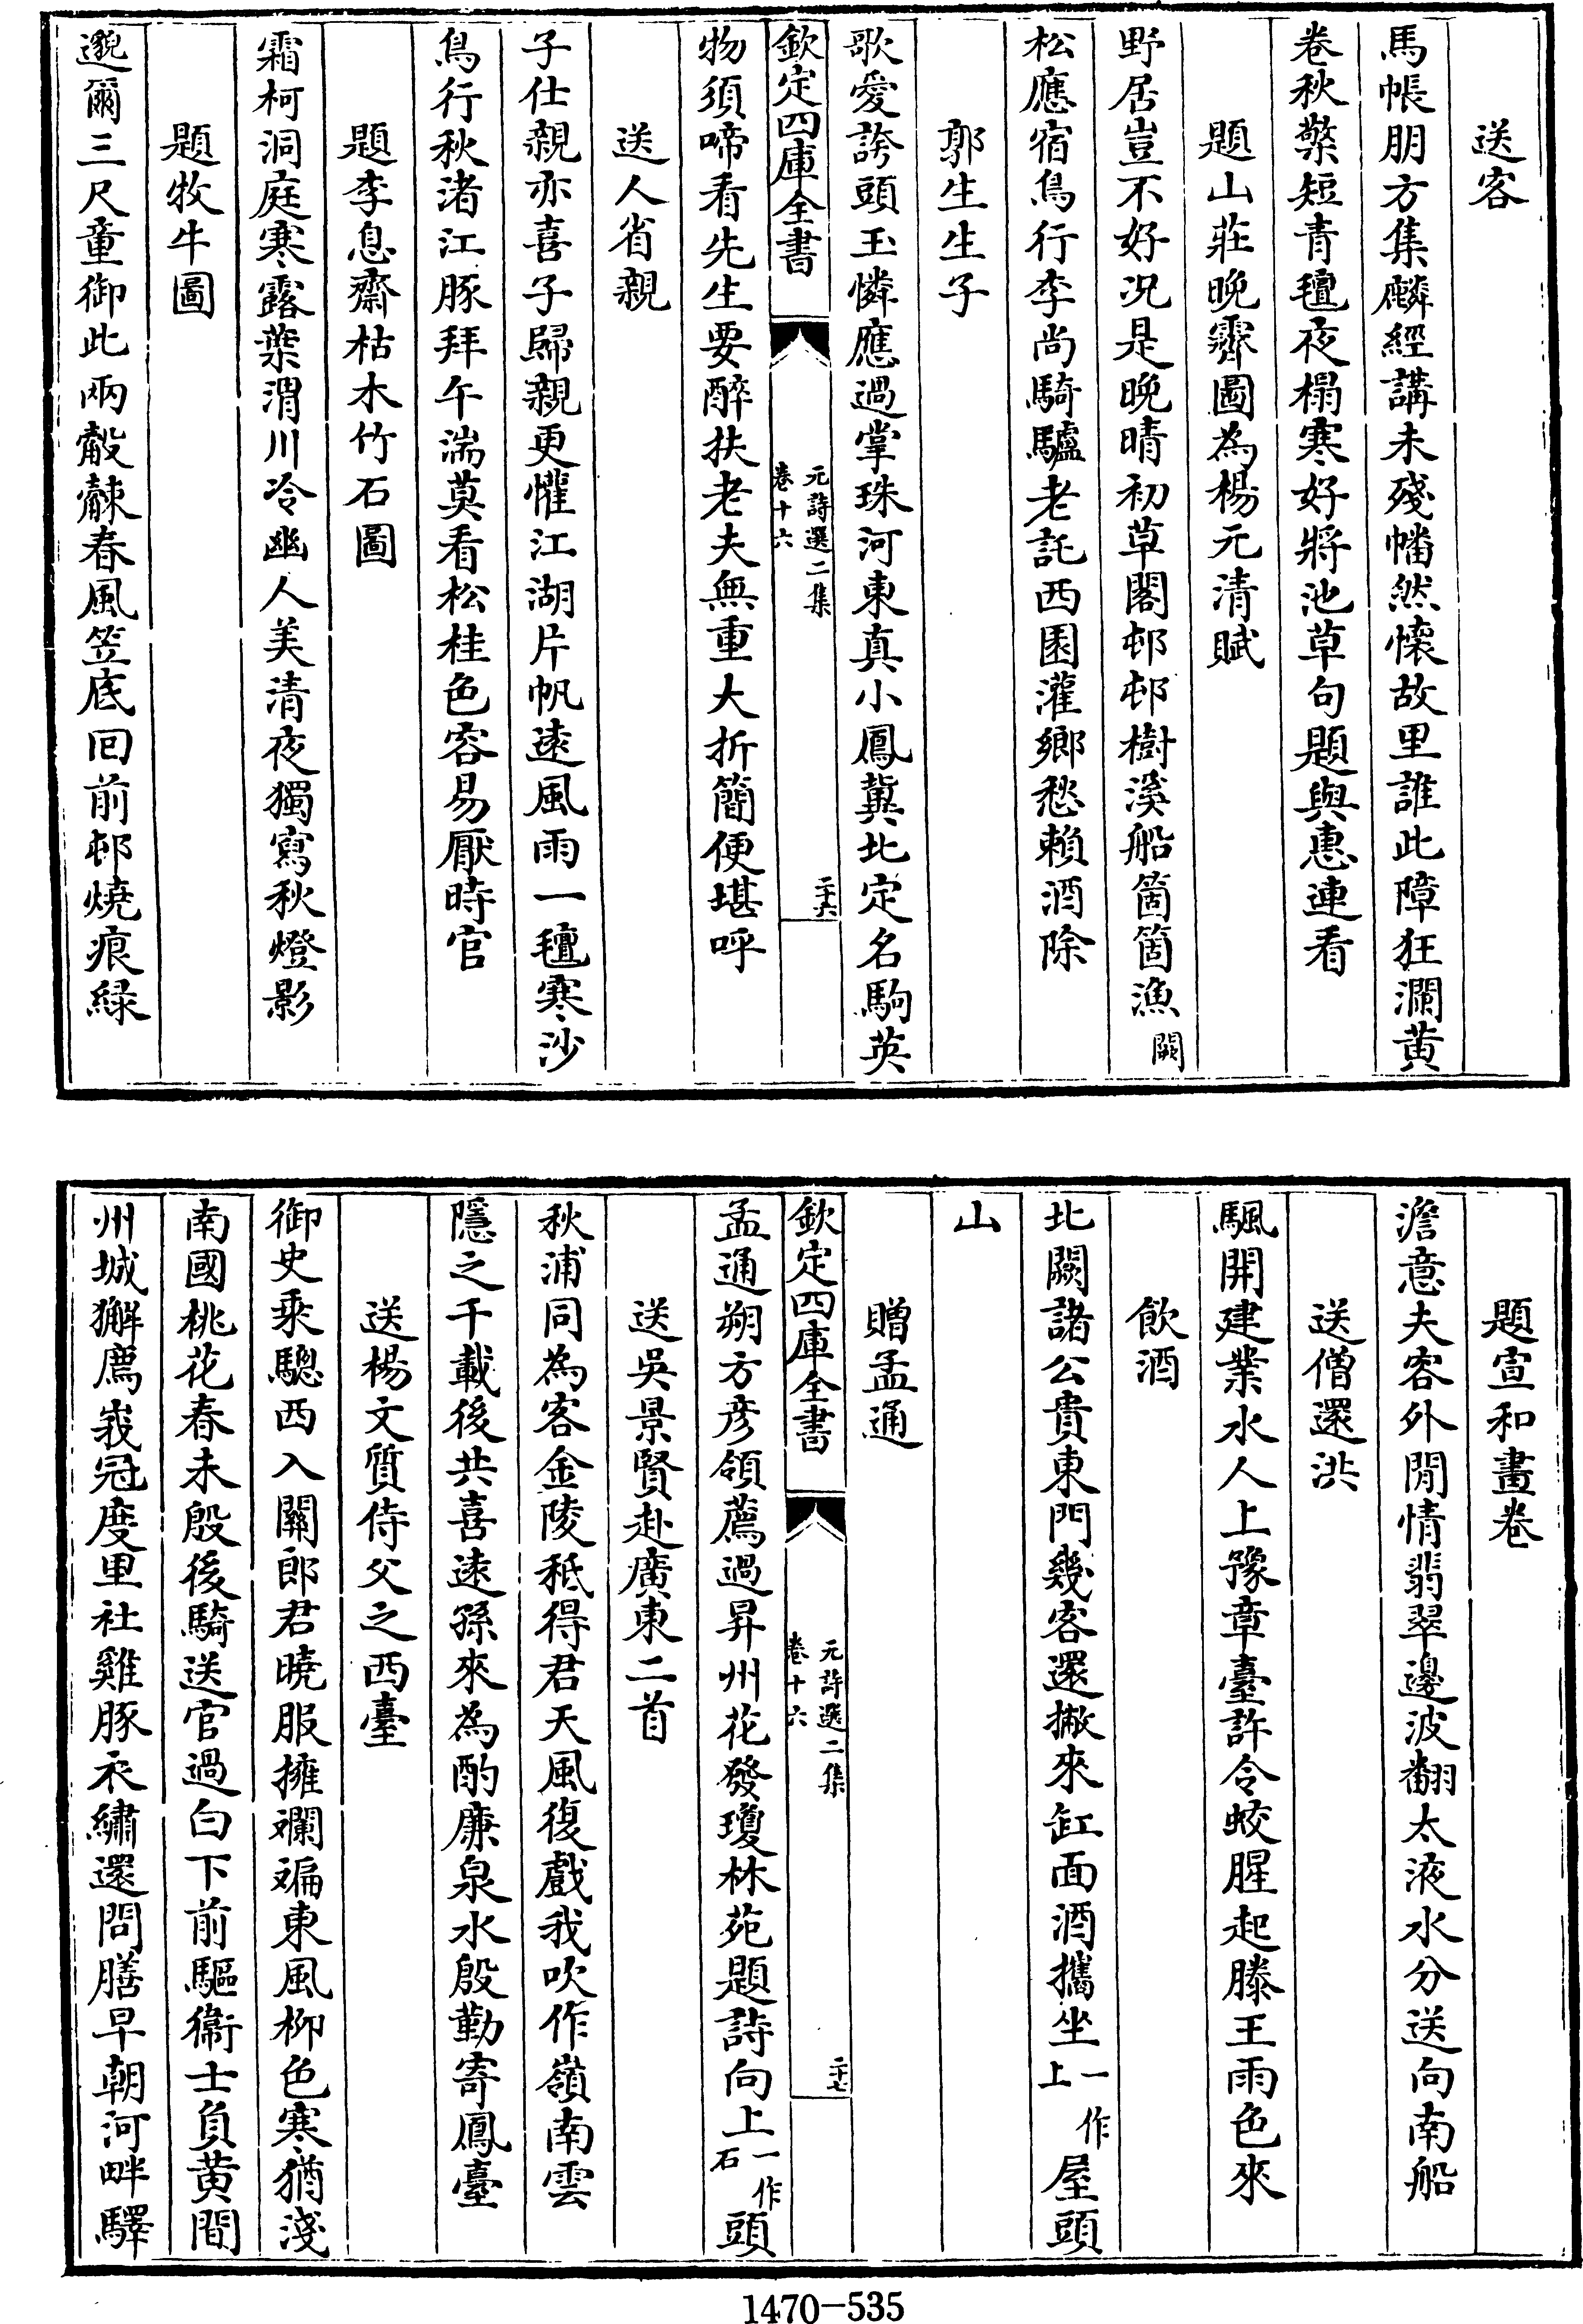 送客
馬帳朋方集麟經講未殘幡然懷故里誰此障狂瀾黄
卷秋檠短青氊夜榻寒好將池草句題與惠連看
題山莊晚霽圖為楊元清賦
野居豈不好况是晚晴初草閣邨邨樹溪船箇箇漁闕
松應宿鳥行李尚騎驢老託西園灌鄉愁賴酒除
郭生生子
歌愛誇頭玉憐應過掌珠河東真小鳳冀北定名駒英
欽定四庫全書
元詩選二集
卷十六
二十六
物須啼看先生要醉扶老夫無重大折簡便堪呼
送人省親
子仕親亦喜子歸親更懽江湖片帆遠風雨一氊寒沙
鳥行秋渚江豚拜午湍莫看松桂色容易厭時官
題李息齋枯木竹石圖
霜柯洞庭寒露葉渭川冷幽人美清夜獨寫秋燈影
題牧牛圖
邈爾三尺童御此兩觳觫春風笠底回前邨燒痕緑
題宣和畫卷
澹意夫容外閒情翡翠邊波翻太液水分送向南船
送僧還洪
颿開建業水人上豫章臺許令蛟腥起滕王雨色來
飲酒
北闕諸公貴東門幾客還撇來缸面酒攜坐一作上屋頭
山
贈孟通
欽定四庫全書
元詩選二集
卷十六
二十七
孟通朔方彦領薦過昇州花發瓊林苑題詩向上一作石頭
送吳景賢赴廣東二首
秋浦同為客金陵秪得君天風復戲我吹作嶺南雲
隱之千載後共喜遠孫來為酌廉泉水殷勤寄鳳臺
送楊文質侍父之西臺
御史乘驄西入關郎君曉服擁斕斒東風柳色寒猶淺
南國桃花春未殷後騎送官過白下前驅衞士負黄間
州城獬廌峩冠度里社雞豚衣繡還問膳早朝河畔驛
1470-535